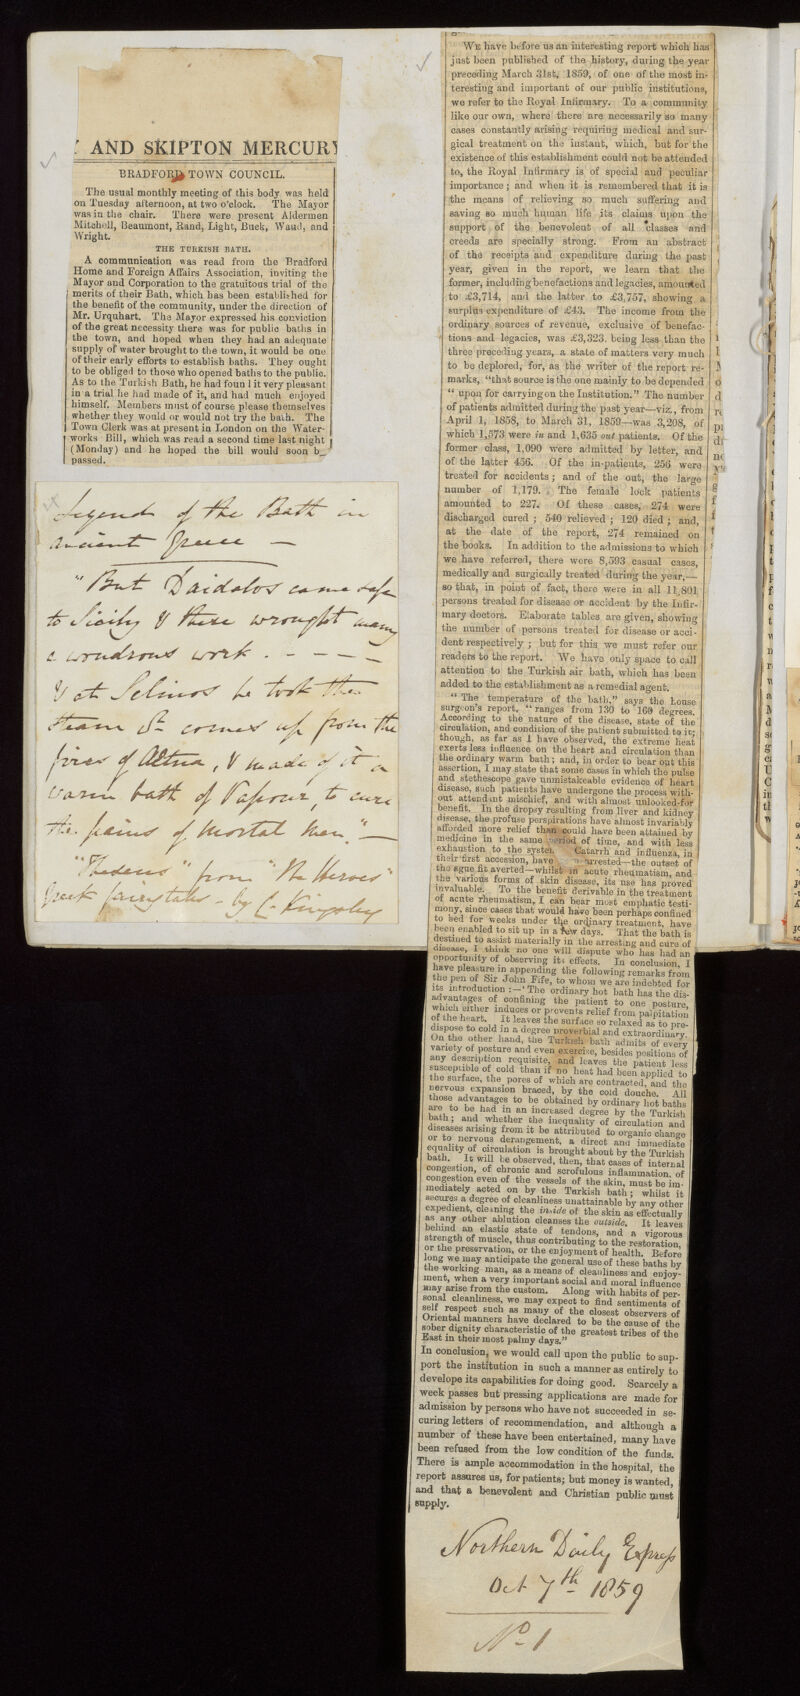 AND SKIPTON MERCURY
BRADFORD TOWN COUNCIL.
The usual monthly meeting of this body was held
on Tuesday afternoon, at two o'clock. The Mayor
was in the chair. There were present Aldermen
Mitchell, Beaumont, Rand, Light, Buck, Waud, and
Wright.
THE TURKISH BATH.
A communication was read from the Bradford
Home and Foreign Affairs Association, inviting the
Mayor and Corporation to the gratuitous trial of the
merits of their Bath, which has been established for
the benefit of the community, under the direction of
Mr. Urquhart. The Mayor expressed his conviction
of the great necessity there was for public baths in
the town, and hoped when they had an adequate
supply of water brought to the town, it would be one
of their early efforts to establish baths. They ought
to be obliged to those who opened baths to the public.
As to the Turkish Bath, he had foun l it very pleasant
in a trial he had made of it, and had much enjoyed
himself. Members must of course please themselves
whether they would or would not try the bath. The
Town Clerk was at present in London on the Water-
works Bill, which was read a second time last night
(Monday) and he hoped the bill would soon b
passed.
Legend of the Bath in
ancient Greece —
"But Daidalos came safe
to Sicily & there wrought many
a wondrous work - - - - -
& at Selinos he took the
steam wh. comes up from the
fires of Ætna, & made of it a
warm bath of Vapour, to cure
the pains of mortal men." —
"Theseus" from "The Heroes"
Greek fairy tales - by C. Kingsley
WE have before us an interesting report which has
just been published of the history, during the year
preceding March 31st, 1859, of one of the most in-
teresting and important of our public institutions,
we refer to the Royal Infirmary. To a community
like our own, where there are necessarily so many
cases constantly arising requiring medical and sur-
gical treatment on the instant, which, but for the
existence of this establishment could not be attended
to, the Royal Infirmary is of special and peculiar
importance; and when it is remembered that it is
the means of relieving so much suffering and
saving so much human life its claims upon the
support of the benevolent of all classes and
creeds are specially strong. From an abstract
of the receipts and expenditure during the past
year, given in the report, we learn that the
former, including benefactions and legacies, amounted
to £3,714, and the latter to £3,757, showing a
surplus expenditure of £43. The income from the
ordinary sources of revenue, exclusive of benefac-
tions and legacies, was £3,323, being less than the
three preceding years, a state of matters very much
to be deplored, for, as the writer of the report re-
marks, "that source is the one mainly to be depended
" upon for carrying on the Institution." The number
of patients admitted during the past year—viz., from
April 1, 1858, to March 31, 1859—was 3,208, of
which 1,573 were in and 1,635 out patients. Of the
former class, 1,090 were admitted by letter, and
of the latter 456. Of the in-patients, 256 were
treated for accidents; and of the out, the large
number of 1,179. The female lock patients
amounted to 227. Of these cases, 274 were
discharged cured; 540 relieved; 120 died; and,
at the date of the report, 274 remained on
the books. In addition to the admissions to which
we have referred, there were 8,593 casual cases,
medically and surgically treated during the year,—
so that, in point of fact, there were in all 11,801
persons treated for disease or accident by the Infir-
mary doctors. Elaborate tables are given, showing
the number of persons treated for disease or acci-
dent respectively; but for this we must refer our
readers to the report. We have only space to call
attention to the Turkish air bath, which has been
added to the establishment as a remedial agent.
"The temperature of the bath," says the house
surgeon's report, "ranges from 130 to 160 degrees.
According to the nature of the disease, state of the
circulation, and condition of the patient submitted to it;
though, as far as I have observed, the extreme heat
exerts less influence on the heart and circulation than
the ordinary warm bath; and, in order to bear out this
assertion, I may state that some cases in which the pulse
and stethescope gave unmistakeable evidence of heart
disease, such patients have undergone the process with-
out attendant mischief, and with almost unlooked-for
benefit. In the dropsy resulting from liver and kidney
disease, the profuse perspirations have almost invariably
afforded more relief than could have been attained by
medicine in the same period of time, and with less
exhaustion to the system. Catarrh and influenza, in
their first accession, have arrested—the outset of
the ague fit averted—whilst in acute rheumatism, and
the various forms of skin disease, its use has proved
invaluable. To the benefit derivable in the treatment
of acute rheumatism, I can bear most emphatic testi-
mony, since cases that would have been perhaps confined
to bed for weeks under the ordinary treatment, have
been enabled to sit up in a few days. That the bath is
destined to assist materially in the arresting and cure of
disease, I think no one will dispute who has had an
opportunity of observing its effects. In conclusion, I
have pleasure in appending the following remarks from
the pen of Sir John Fife, to whom we are indebted for
its introduction:—'The ordinary hot bath has the dis-
advantages of confining the patient to one posture,
which either induces or prevents relief from palpitation
of the heart. It leaves the surface so relaxed as to pre-
dispose to cold in a degree proverbial and extraordinary.
On the other hand, the Turkish bath admits of every
variety of posture and even exercise, besides positions of
any description requisite, and leaves the patient less
susceptible of cold than if no heat had been applied to
the surface, the pores of which are contracted, and the
nervous expansion braced, by the cold douche. All
those advantages to be obtained by ordinary hot baths
are to be had in an increased degree by the Turkish
bath; and whether the inequality of circulation and
diseases arising from it be attributed to organic change
or to nervous derangement, a direct and immediate
equality of circulation is brought about by the Turkish
bath. It will be observed, then, that cases of internal
congestion, of chronic and scrofulous inflammation, of
congestion even of the vessels of the skin, must be im-
mediately acted on by the Turkish bath; whilst it
secures a degree of cleanliness unattainable by any other
expedient, cleaning the inside of the skin as effectually
as any other ablution cleanses the outside. It leaves
behind an elastic state of tendons, and a vigorous
strength of muscle, thus contributing to the restoration,
or the preservation, or the enjoyment of health. Before
long we may anticipate the general use of these baths by
the working man, as a means of cleanliness and enjoy-
ment, when a very important social and moral influence
may arise from the custom. Along with habits of per-
sonal cleanliness, we may expect to find sentiments of
self respect such as many of the closest observers of
Oriental manners have declared to be the cause of the
sober dignity characteristic of the greatest tribes of the
East in their most palmy days."
In conclusion, we would call upon the public to sup-
port the institution in such a manner as entirely to
develope its capabilities for doing good. Scarcely a
week passes but pressing applications are made for
admission by persons who have not succeeded in se-
curing letters of recommendation, and although a
number of these have been entertained, many have
been refused from the low condition of the funds.
There is ample accommodation in the hospital, the
report assures us, for patients; but money is wanted,
and that a benevolent and Christian public must
supply.
Northern Daily Express
Oct 7th 1859
No 1